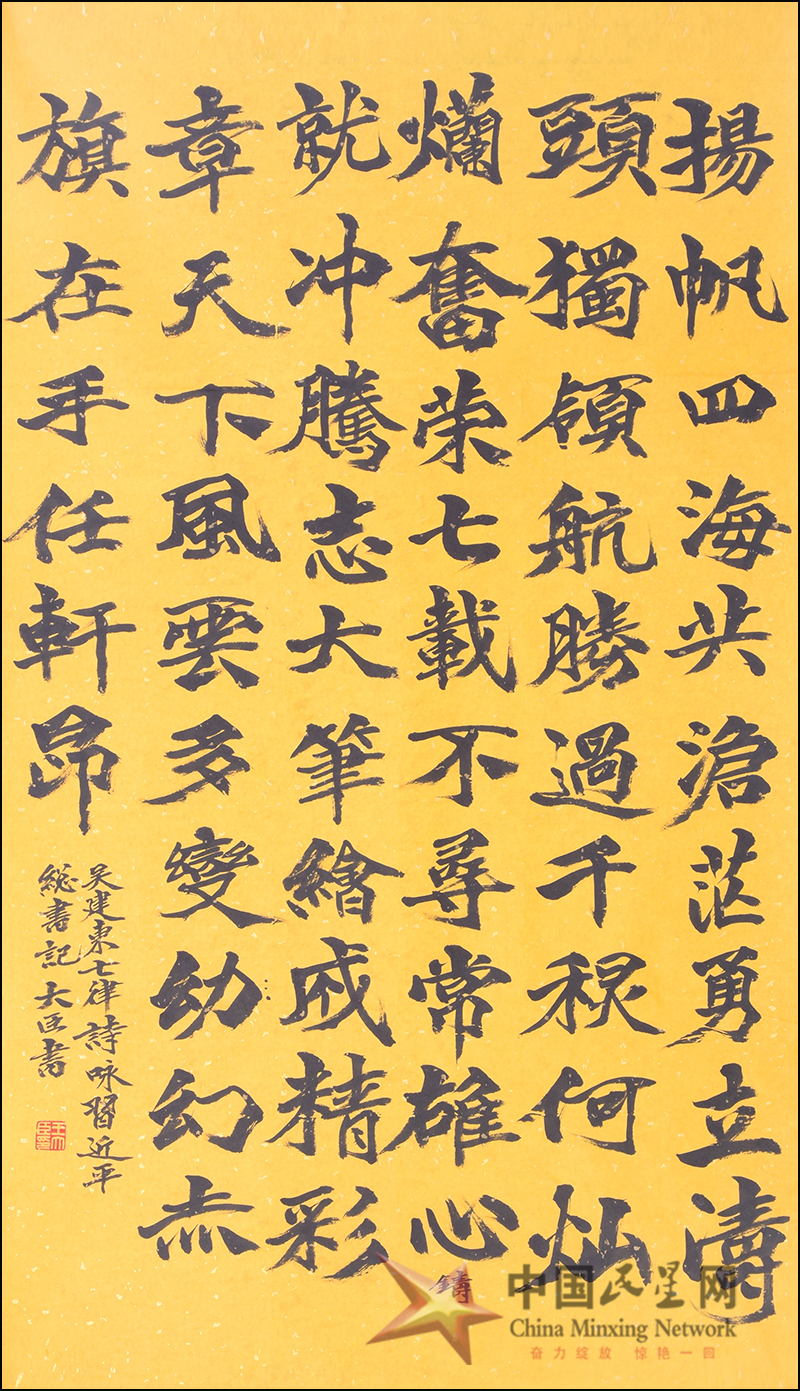 揚帆四海共滄茫勇立濤
頭獨領航勝過千秋何灿
爛奮荣七載不尋常雄心鑄
就冲騰志大筆繪成精彩
章天下風雲多變幼幻赤
旗在手任軒昂
吴建東七律詩咏習近平
総書記 大臣書
中国民星网
China Minxing Network
奋力绽放 惊艳一回